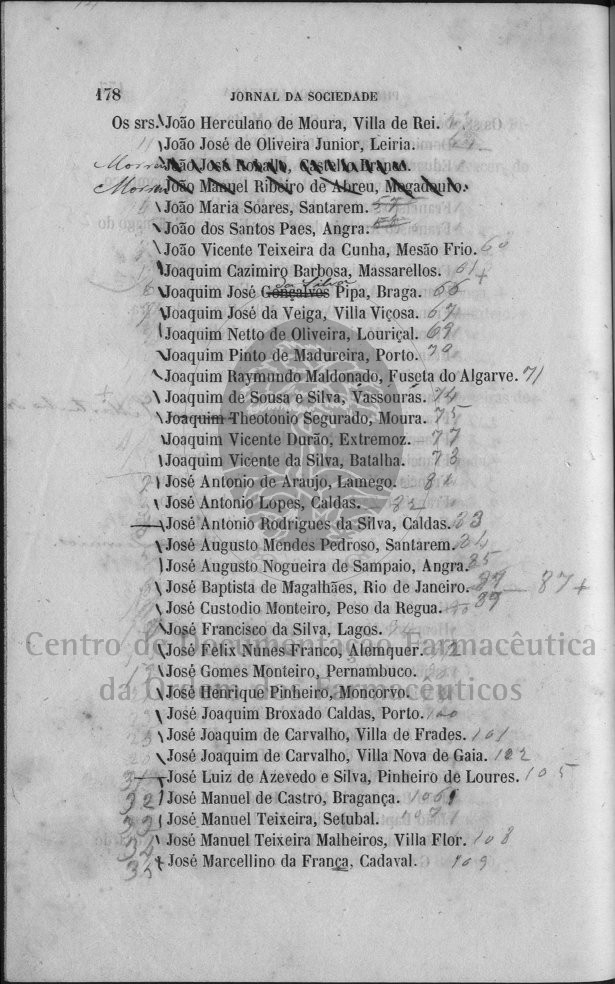 178 JORNAL DA SOCIEDADE
Os srs. João Herculano de Moura, Villa de Rei.
João José de Oliveira Junior, Leiria.
João José
João Manuel Ribeiro de Abreu, Mogadouro.
João Maria Soares, Santarem. 57
João dos Santos Paes, Angra.
João Vicente Teixeira da Cunha, Mesão Frio. 60
Joaquim Cazimiro Barbosa, Massarellos. 61+
Joaquim José Gonçalves Pipa, Braga. 66
Joaquim José da Veiga, Villa Viçosa. 67
Joaquim Netto de Oliveira, Louriçal. 69
Joaquim Pinto de Madureira, Porto. 70
Joaquim Raymundo Maldonado, Fuseta do Algarve. 71
Joaquim de Sousa e Silva, Vassouras. 74
Joaquim Theotonio Segurado, Moura. 75
Joaquim Vicente Durão, Extremoz. 77
Joaquim Vicente da Silva, Batalha. 78
José Antonio de Araujo, Lamego. 81
José Antonio Lopes, Caldas. 82
José Antonio Rodrigues da Silva, Caldas. 83
José Augusto Mendes Pedroso, Santarem. 84
José Augusto Nogueira de Sampaio, Angra. 85
José Baptista de Magalhães, Rio de Janeiro. 87 — 87+
José Custodio Monteiro, Peso da Regua. 89
José Francisco da Silva, Lagos.
Centro de Documentação Farmacêutica
José Felix Nunes Franco, Alemquer.
José Gomes Monteiro, Pernambuco.
da Ordem dos Farmacêuticos
José Henrique Pinheiro, Moncorvo.
José Joaquim Broxado Caldas, Porto. 100
José Joaquim de Carvalho, Villa de Frades. 101
José Joaquim de Carvalho, Villa Nova de Gaia. 102
José Luiz de Azevedo e Silva, Pinheiro de Loures. 105
32 José Manuel de Castro, Bragança. 106
33 José Manuel Teixeira, Setubal. 107
34 José Manuel Teixeira Malheiros, Villa Flor. 108
35 José Marcellino da França, Cadaval. 109